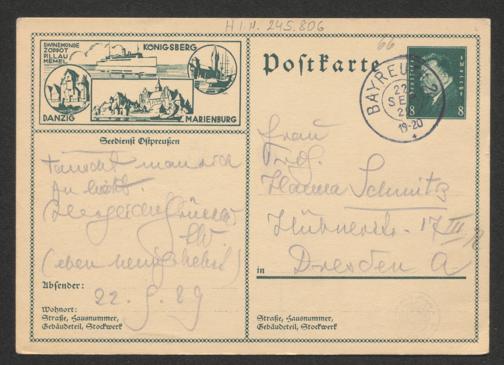 H.I.N. 245.806
66
SWINEMÜNDE
ZOPPOT
PILLAU
MEMEL
KÖNIGSBERG
DANZIG
MARIENBURG
Seedienst Ostpreußen
Postkarte
BAYREUTH 2
22
SEP
19-20
8 8
tauscht man sich
zu
(eben
Absender: 22. 9. 29
Wohnort:
Straße, Hausnummer,
Gebäudeteil, Stockwerk
Frau
Prof.
Hanna Schmitz
Hübnerstr. 17 III
in Dresden A
Straße, Hausnummer,
Gebäudeteil, Stockwerk